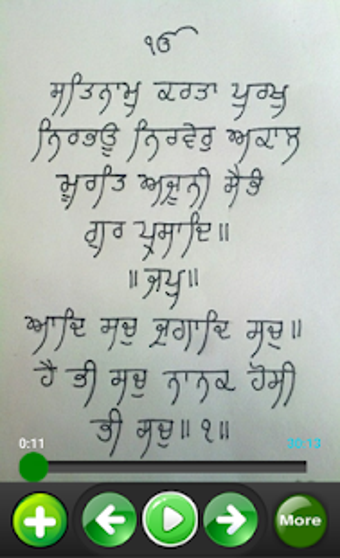 ੴ
ਸਤਿਨਾਮੁ ਕਰਤਾ ਪੁਰਖੁ
ਨਿਰਭਉ ਨਿਰਵੈਰੁ ਅਕਾਲ
ਮੂਰਤਿ ਅਜੂਨੀ ਸੈਭੰ
ਗੁਰ ਪ੍ਰਸਾਦਿ॥
॥ਜਪੁ॥
ਆਦਿ ਸਚੁ ਜੁਗਾਦਿ ਸਚੁ॥
ਹੈ ਭੀ ਸਚੁ ਨਾਨਕ ਹੋਸੀ
ਭੀ ਸਚੁ॥੧॥
0:11 30:13
More